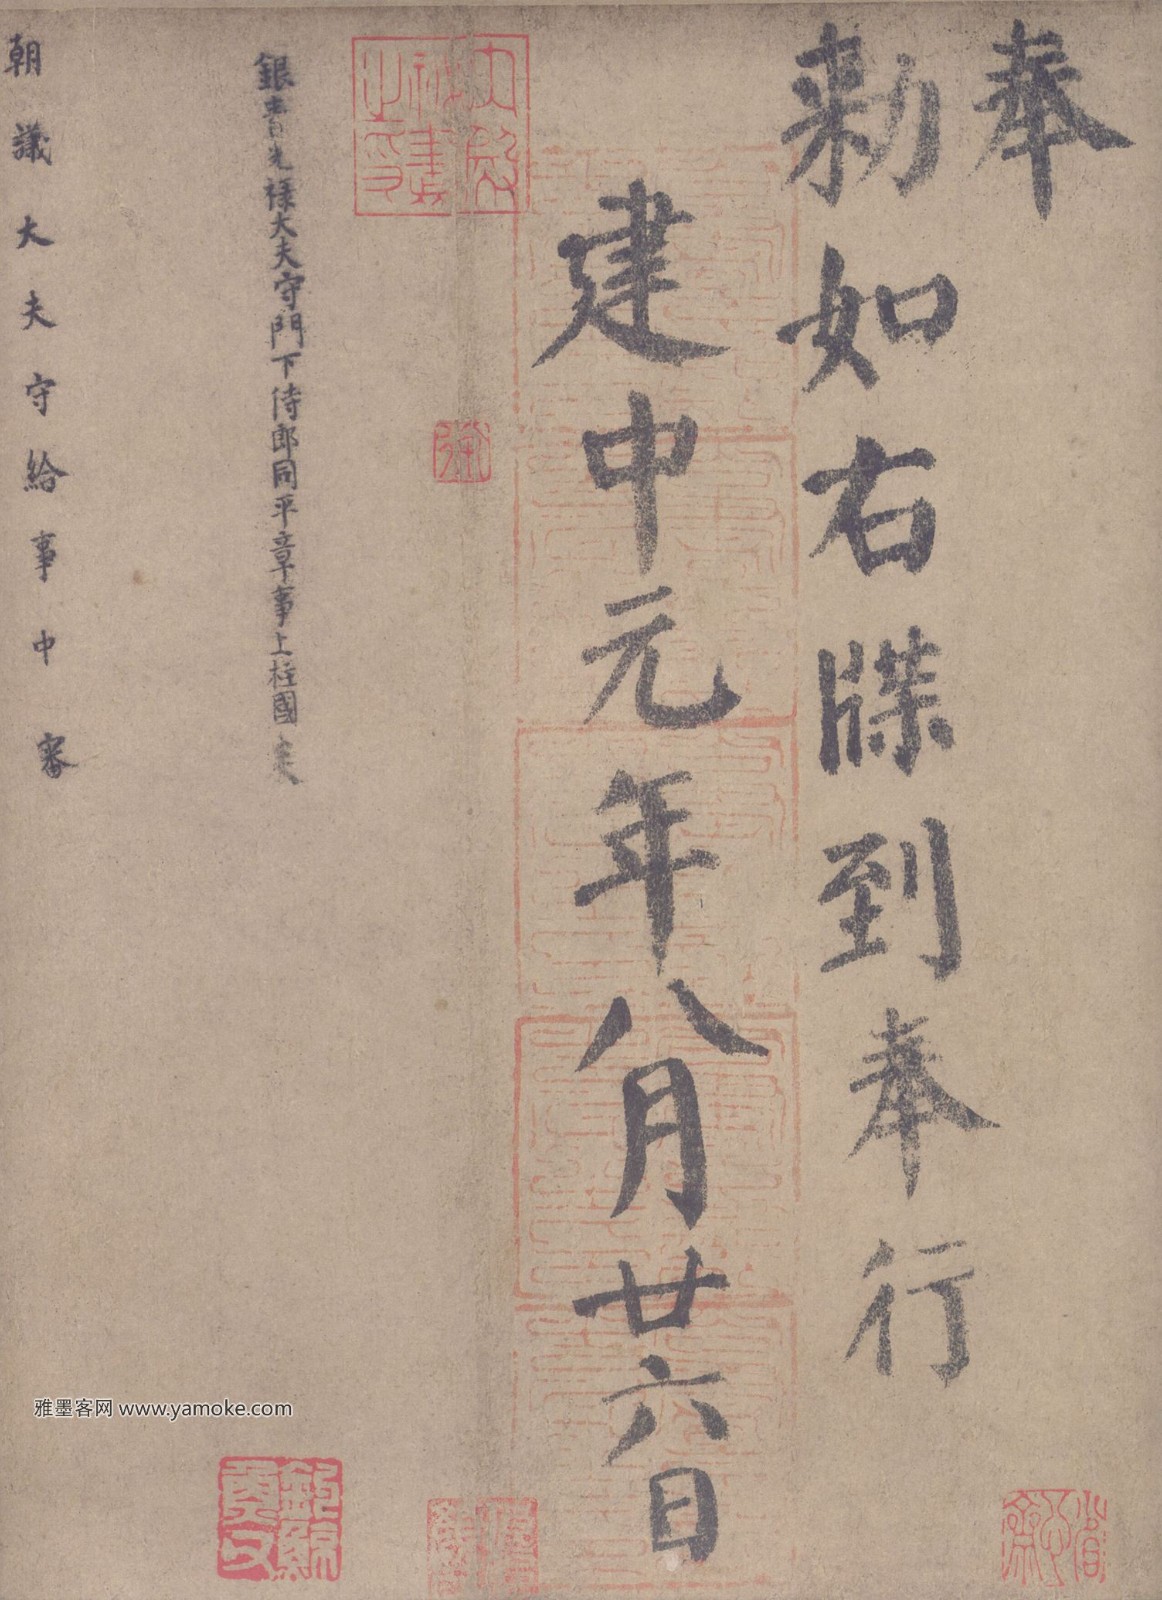 奉
勅如右牒到奉行
建中元年八月廿六日
銀青光祿大夫守門下侍郎同平章事上柱國
朝議大夫守給事中審
雅墨客网 www.yamoke.com